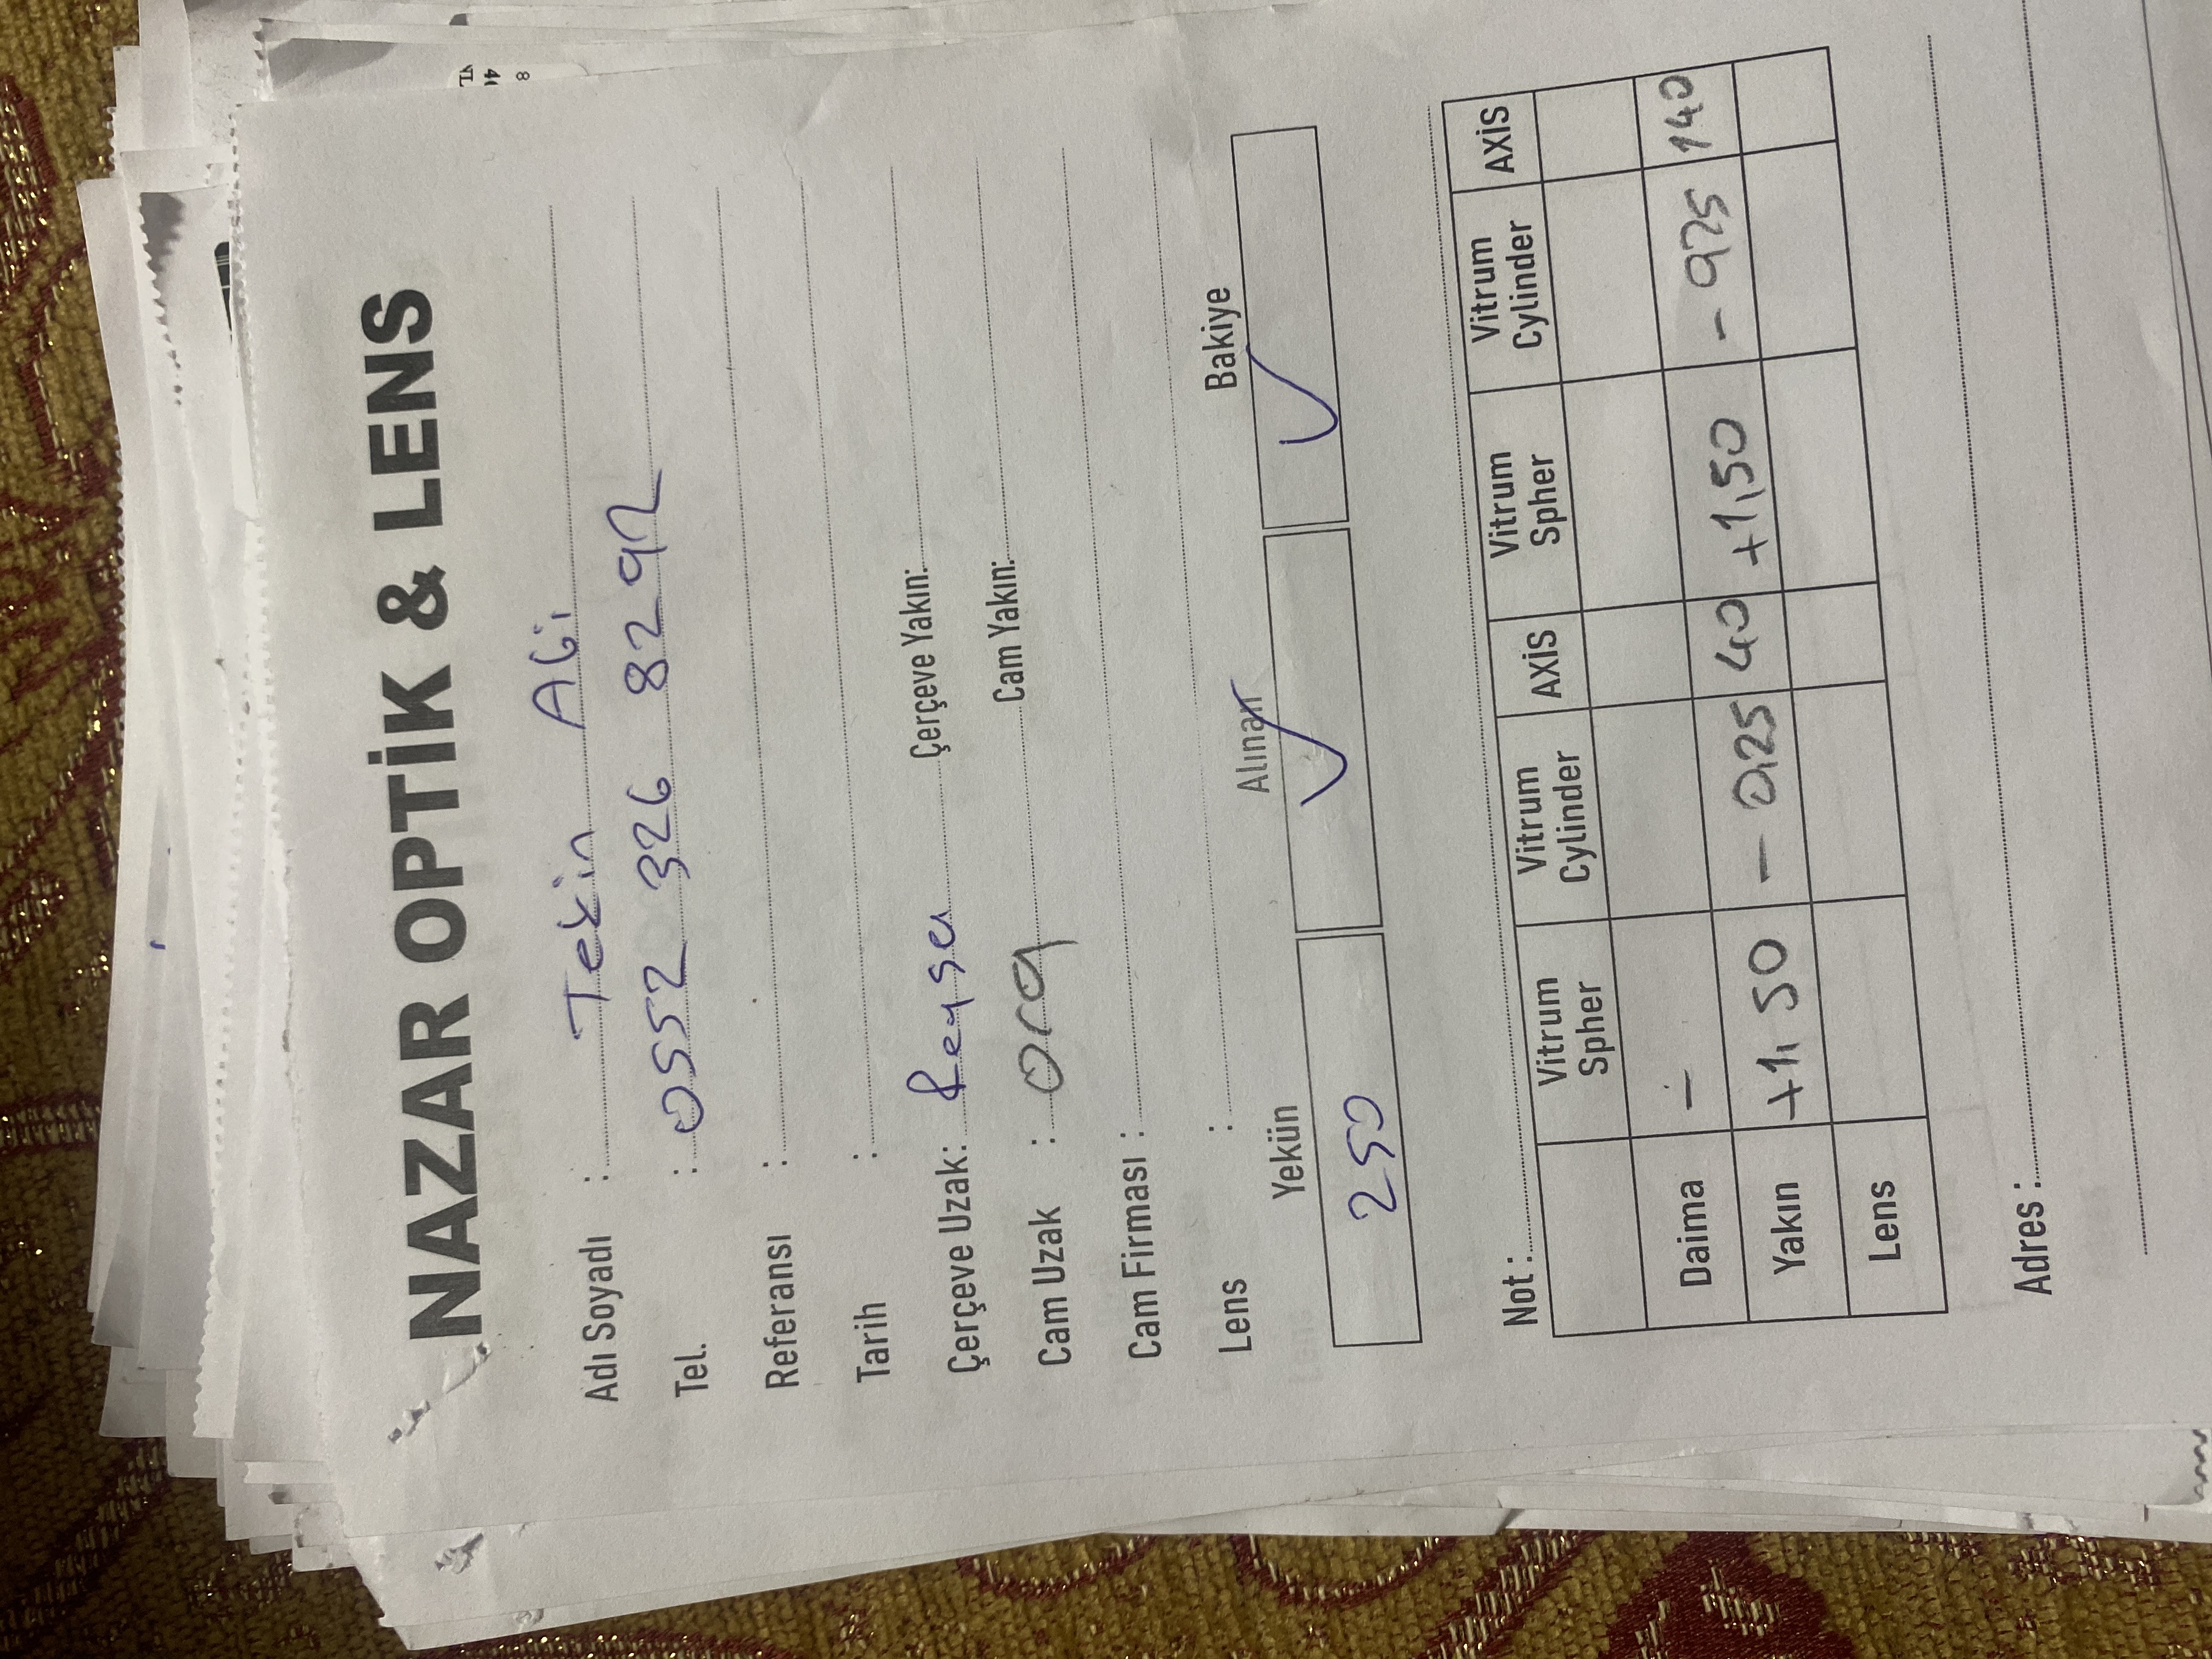 NAZAR OPTİK & LENS
Adı Soyadı : Tekin Abi
Tel. : 0552 326 8292
Referansı :
Tarih :
Çerçeve Uzak: Çerçeve Yakın:
Cam Uzak : org Cam Yakın:
Cam Firması :
Lens :
Yekün Alınan Bakiye
250 ✓ ✓
Not :
Vitrum Spher Vitrum Cylinder AXİS Vitrum Spher Vitrum Cylinder AXİS
Daima -
Yakın +1,50 - 0,25 40 +1,50 - 0,75 140
Lens
Adres :